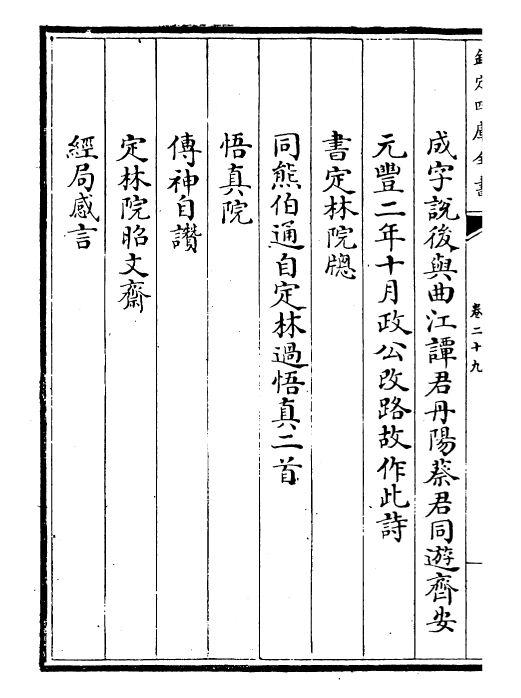 欽定四庫全書
卷二十九
成字說後與曲江譚君丹陽蔡君同遊齊安
元豐二年十月政公改路故作此詩
書定林院牕
同熊伯通自定林過悟真二首
悟真院
傳神自讚
定林院昭文齋
經局感言